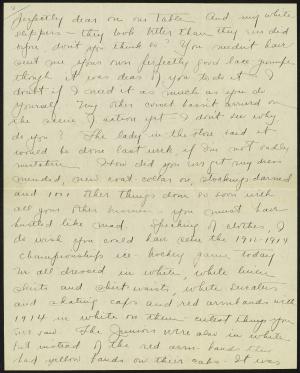 perfectly dear on our table. And my white
slippers — they look better than they ever did
before don't you think so? You needn't have
sent me your own perfectly good lace jumper
though it was dear of you to do it — I
doubt if I need it as much as you do
yourself. My other corset hasn't arrived on
the scene of action yet — I don't see why
do you? The lady in the store said it
would be done last week, if I'm not sadly
mistaken. How did you ever get my dress
mended, new coat-collar on, stockings darned
and other things done so soon with
all your other business. You must have
hustled like mad. Speaking of clothes, I
do wish you could have seen the 1911-1914
championships ice-hockey game today
In all dressed in white, white linen
skirts and shirt waists, white sweaters
and skating caps and red armbands with
1914 in white on them - cutest things you
ever saw. The Juniors were also in white
but instead of the red arm-bands they
had yellow bands on their caps. It was